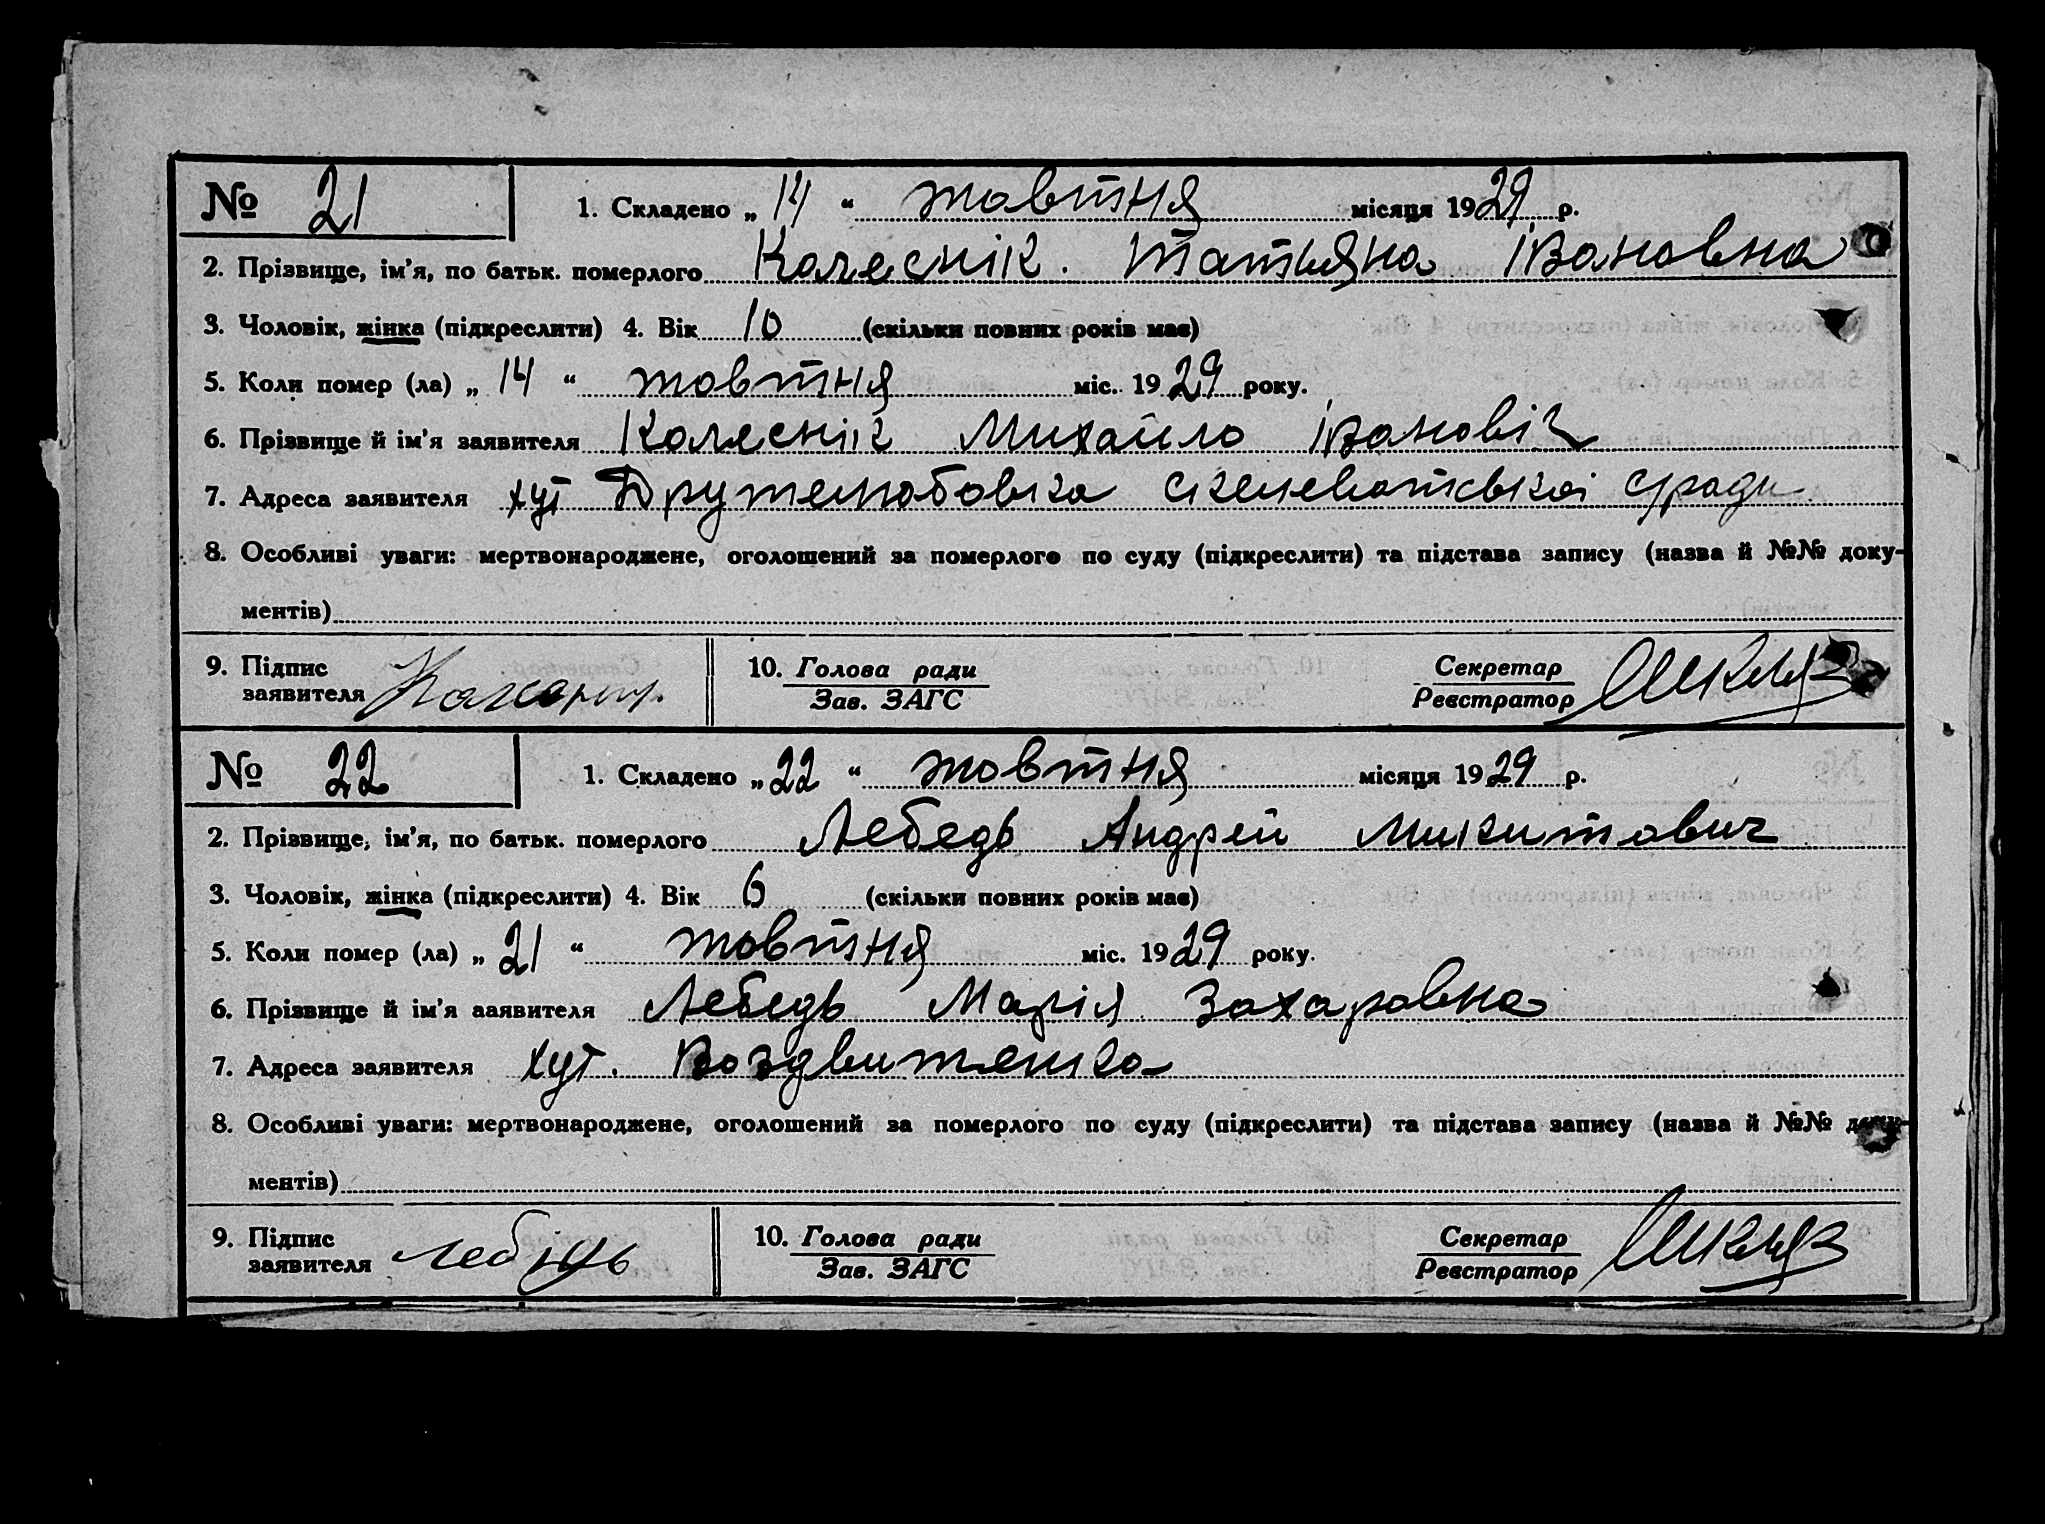 № 21 1. Складено „ 14 “ жовтня місяця 1929 р.
2. Прізвище, ім’я, по батьк. померлого Колеснік. Татьяна Івановна
3. Чоловік, жінка (підкреслити) 4. Вік 10 (скільки повних років має)
5. Коли помер (ла) „ 14 “ жовтня міс. 1929 року.
6. Прізвище й ім’я заявителя Колеснік Михайло Івановіч
7. Адреса заявителя хут сради
8. Особливі уваги: мертвонароджене, оголошений за померлого по суду (підкреслити) та підстава запису (назва й №№ доку-
ментів)
9. Підпис 10. Голова ради Секретар
заявителя Зав. ЗАГС Реєстратор
№ 22 1. Складено „ 22 “ жовтня місяця 1929 р.
2. Прізвище, ім’я, по батьк. померлого Лебедь Андрей Микитович
3. Чоловік, жінка (підкреслити) 4. Вік 6 (скільки повних років має)
5. Коли помер (ла) „ 21 “ жовтня міс. 1929 року.
6. Прізвище й ім’я заявителя Лебедь Марія Захаровна
7. Адреса заявителя хут. Воздвиженка
8. Особливі уваги: мертвонароджене, оголошений за померлого по суду (підкреслити) та підстава запису (назва й №№ доку-
ментів)
9. Підпис 10. Голова ради Секретар
заявителя Лебідь Зав. ЗАГС Реєстратор